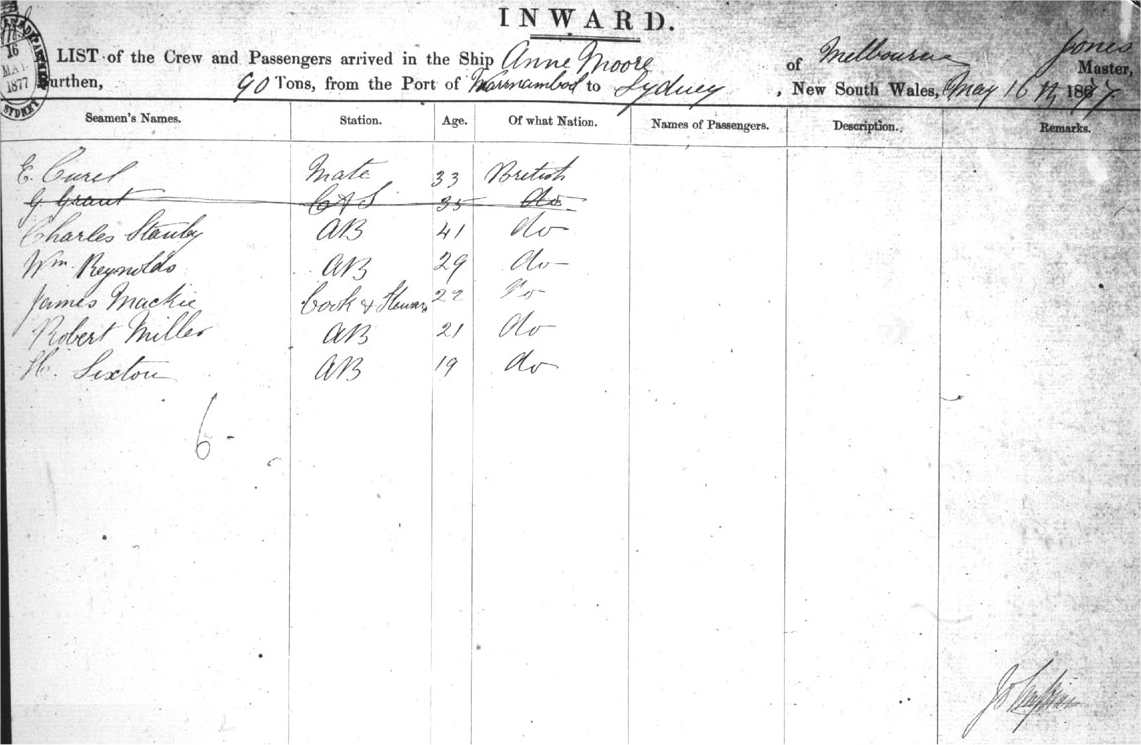 INWARD.
16
MAY
1877
SYDNEY
LIST of the Crew and Passengers arrived in the Ship Anne Moore of Melbourne Jones Master,
urthen, 90 Tons, from the Port of Warrnambool to Sydney, New South Wales, May 16th 1877
Seamen's Names. Station. Age. Of what Nation. Names of Passengers. Description. Remarks.
E. Curel Mate 33 British
G Grant C & S 35 do
Charles Stanby AB 41 do
Wm. Reynolds AB 29 do
James Mackie Cook & Steward 22 Do
Robert Miller AB 21 do
H. Sexton AB 19 do
6